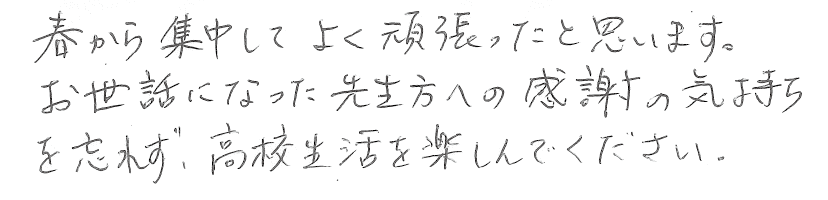 春から集中してよく頑張ったと思います。
お世話になった先生方への感謝の気持ち
を忘れず、高校生活を楽しんでください。